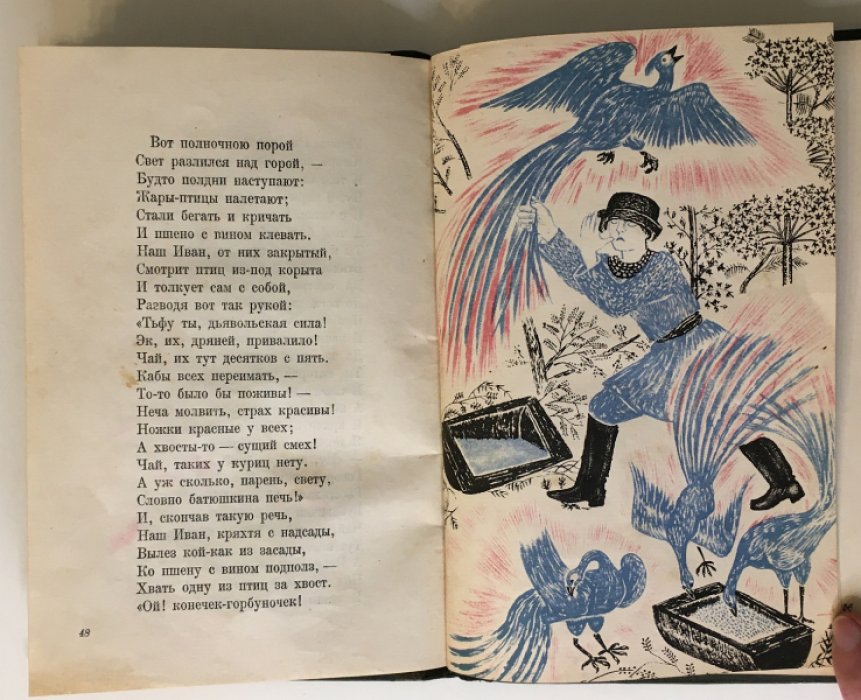 Вот полночною порой
Свет разлился над горой, —
Будто полдни наступают:
Жары-птицы налетают;
Стали бегать и кричать
И пшено с вином клевать.
Наш Иван, от них закрытый,
Смотрит птиц из-под корыта
И толкует сам с собой,
Разводя вот так рукой:
«Тьфу ты, дьявольская сила!
Эк, их, дряней, привалило!
Чай, их тут десятков с пять.
Кабы всех переимать, —
То-то было бы поживы! —
Неча молвить, страх красивы!
Ножки красные у всех;
А хвосты-то — сущий смех!
Чай, таких у куриц нету.
А уж сколько, парень, свету,
Словно батюшкина печь!»
И, скончав такую речь,
Наш Иван, кряхтя с надсады,
Вылез кой-как из засады,
Ко пшену с вином подполз, —
Хвать одну из птиц за хвост.
«Ой! конечек-горбуночек!
48